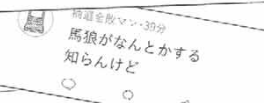 ・39分
馬狼がなんとかする
知らんけど